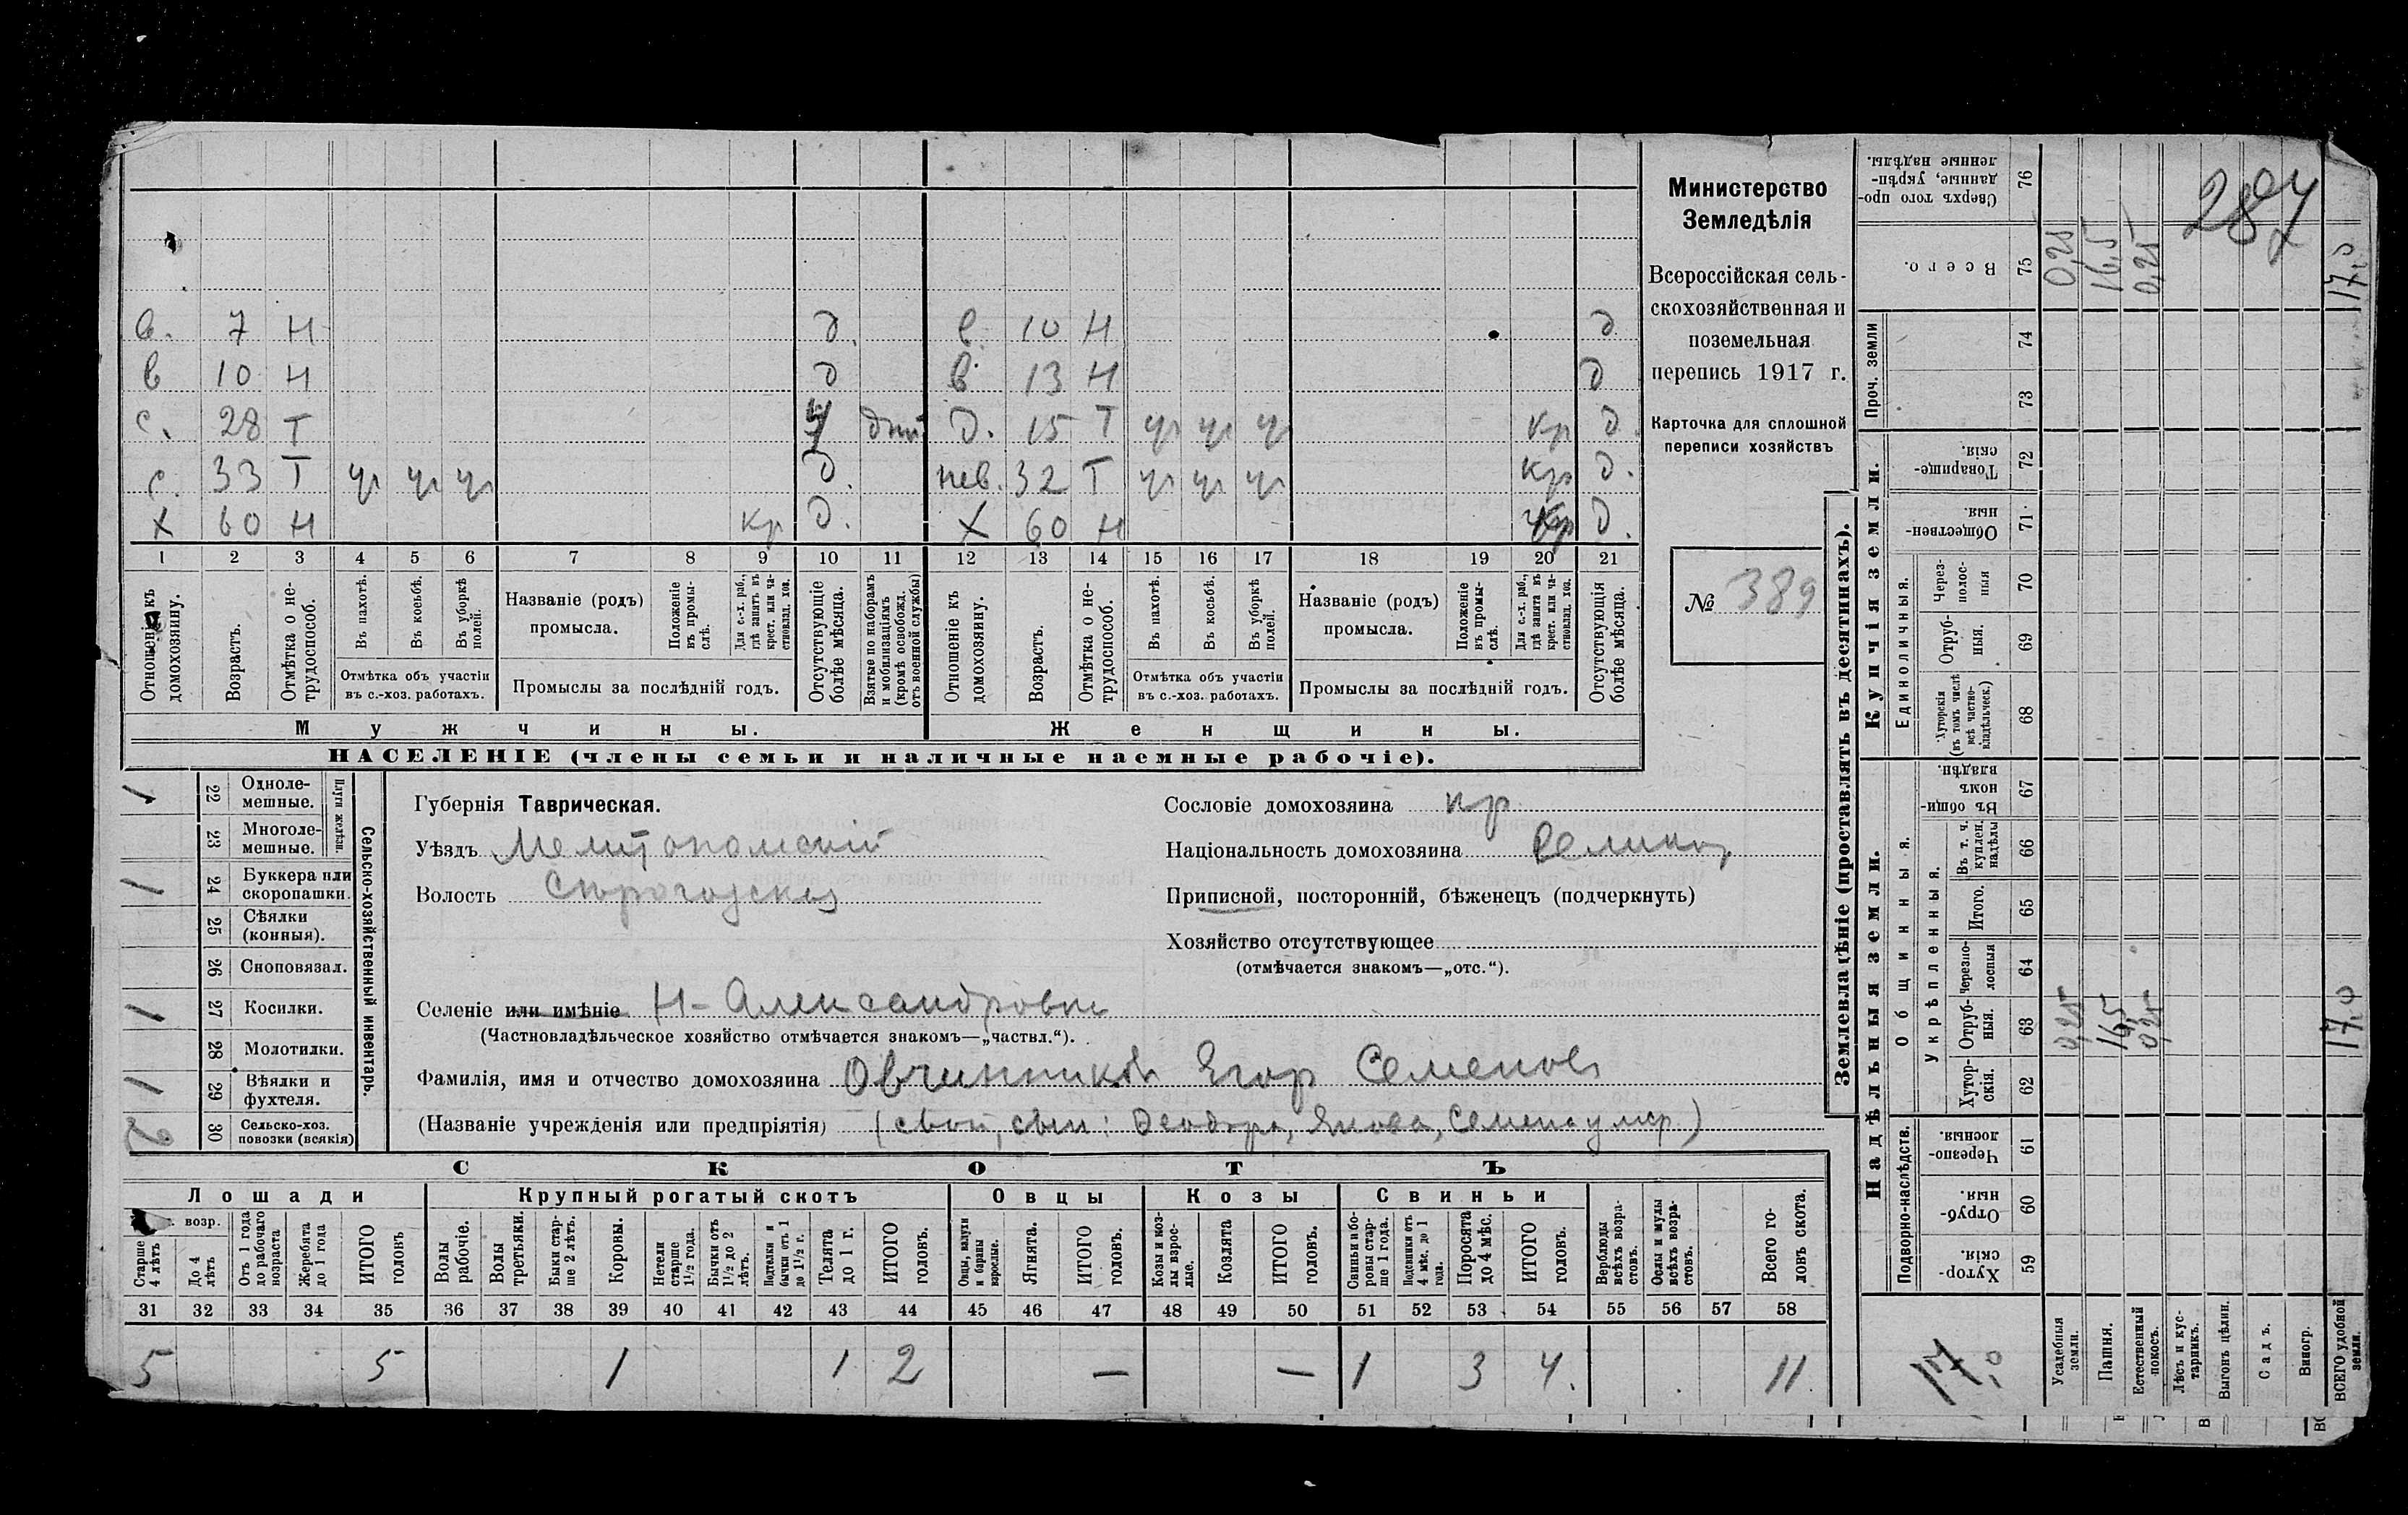 в. 7 Н д. в. 10 Н д
в 10 Н д в. 13 Н д
с. 28 Т дни д. 15 Т уч уч уч кр д.
с. 33 Т уч уч уч д. нев. 32 Т уч уч уч кр д.
Х 60 Н кр д. Х 60 Н кр д.
1 2 3 4 5 6 7 8 9 10 11 12 13 14 15 16 17 18 19 20 21
Отношеніе къ домохозяину.
Возрастъ.
Отмѣтка о не-трудоспособ.
Въ пахотѣ.
Въ косьбѣ.
Въ уборкѣ полей.
Отмѣтка объ участіи
въ с.-хоз. работахъ.
Названіе (родъ)
промысла.
Положеніе въ промы-слѣ.
Для с.-х. раб., гдѣ занятъ въ крест. или ча-стновлад. хоз.
Промыслы за послѣдній годъ.
Отсутствующіе болѣе мѣсяца.
Взятые по наборамъ и мобилизаціямъ (кромѣ освобожд. отъ военной службы)
Отношеніе къ домохозяину.
Возрастъ.
Отмѣтка о не-трудоспособ.
Въ пахотѣ.
Въ косьбѣ.
Въ уборкѣ полей.
Отмѣтка объ участіи
въ с.-хоз. работахъ.
Названіе (родъ)
промысла.
Положеніе въ промы-слѣ.
Для с.-х. раб., гдѣ занята въ крест. или ча-стновлад. хоз.
Промыслы за послѣдній годъ.
Отсутствующія болѣе мѣсяца.
Мужчины. Женщины.
НАСЕЛЕНІЕ (члены семьи и наличные наемные рабочіе).
Министерство
Земледѣлія
Всероссійская сель-
скохозяйственная и
поземельная
перепись 1917 г.
Карточка для сплошной
переписи хозяйствъ
№ 389
Сельско-хозяйственный инвентарь.
Плуги желѣзн.
1 22 Одноле-мешные.
23 Многоле-мешные.
1 24 Буккера или скоропашки.
25 Сѣялки (конныя).
26 Сноповязал.
1 27 Косилки.
28 Молотилки.
1 29 Вѣялки и фухтеля.
2 30 Сельско-хоз. повозки (всякія)
Губернія Таврическая.
Уѣздъ Мелитопольскій
Волость Сѣрогозская
Селеніе или имѣніе Н-Александровка
(Частновладѣльческое хозяйство отмѣчается знакомъ—„частвл.“).
Фамилія, имя и отчество домохозяина Овчинниковъ Егор Семенов
(Названіе учрежденія или предпріятія)
Сословіе домохозяина кр
Національность домохозяина Великор
Приписной, посторонній, бѣженецъ (подчеркнуть)
Хозяйство отсутствующее
(отмѣчается знакомъ—„отс.“).
СКОТЪ
Лошади Крупный рогатый скотъ Овцы Козы Свиньи
возр.
Старше 4 лѣтъ
До 4 лѣтъ
Отъ 1 года до рабочаго возраста
Жеребята до 1 года
ИТОГО головъ
Волы рабочіе.
Волы третьяки.
Быки стар-ше 2 лѣтъ.
Коровы.
Нетели старше 1½ года.
Бычки отъ 1½ до 2 лѣтъ.
Подтелки и бычки отъ 1 до 1½ г.
Телята до 1 г.
ИТОГО головъ.
Овцы, валухи и бараны взрослые.
Ягнята.
ИТОГО головъ.
Козы и коз-лы взрос-лые.
Козлята
ИТОГО головъ.
Свиньи и бо-ровы стар-ше 1 года.
Подсвинки отъ 4 мѣс. до 1 года.
Поросята до 4 мѣс.
ИТОГО головъ.
Верблюды всѣхъ возра-стовъ.
Ослы и мулы всѣхъ возра-стовъ.
Всего го-ловъ скота.
31 32 33 34 35 36 37 38 39 40 41 42 43 44 45 46 47 48 49 50 51 52 53 54 55 56 57 58
5 5 1 1 2 — — 1 3 4. 11.
Землевладѣніе (проставлять въ десятинахъ).
Надѣльныя земли. Купчія земли. Проч. земли
Подворно-наслѣдств. Общинныя. Единоличныя.
Укрѣпленныя.
Хутор-скія. 59
Отруб-ныя. 60
Черезпо-лосныя. 61
Хутор-скія. 62
Отруб-ныя. 63
Черезпо-лосныя 64
Итого. 65
Въ т. ч. куплен. надѣлы 66
Въ общи-номъ владѣн. 67
Хуторскія (въ томъ числѣ всѣ частно-владѣльческ.) 68
Отруб-ныя. 69
Через-полос-ныя 70
Обществен-ныя. 71
Товарище-скія. 72
73
74
Всего. 75
Сверхъ того про-данные, укрѣп-ленные надѣлы. 76
17,0
Усадебныя земли. 0,25 0,25
Пашня. 16,5 16,5
Естественный покосъ. 0,25 0,25
Лѣсъ и кус-тарникъ.
Выгонъ цѣлин.
Садъ.
Виногр.
ВСЕГО удобной земли. 17,0 17,0